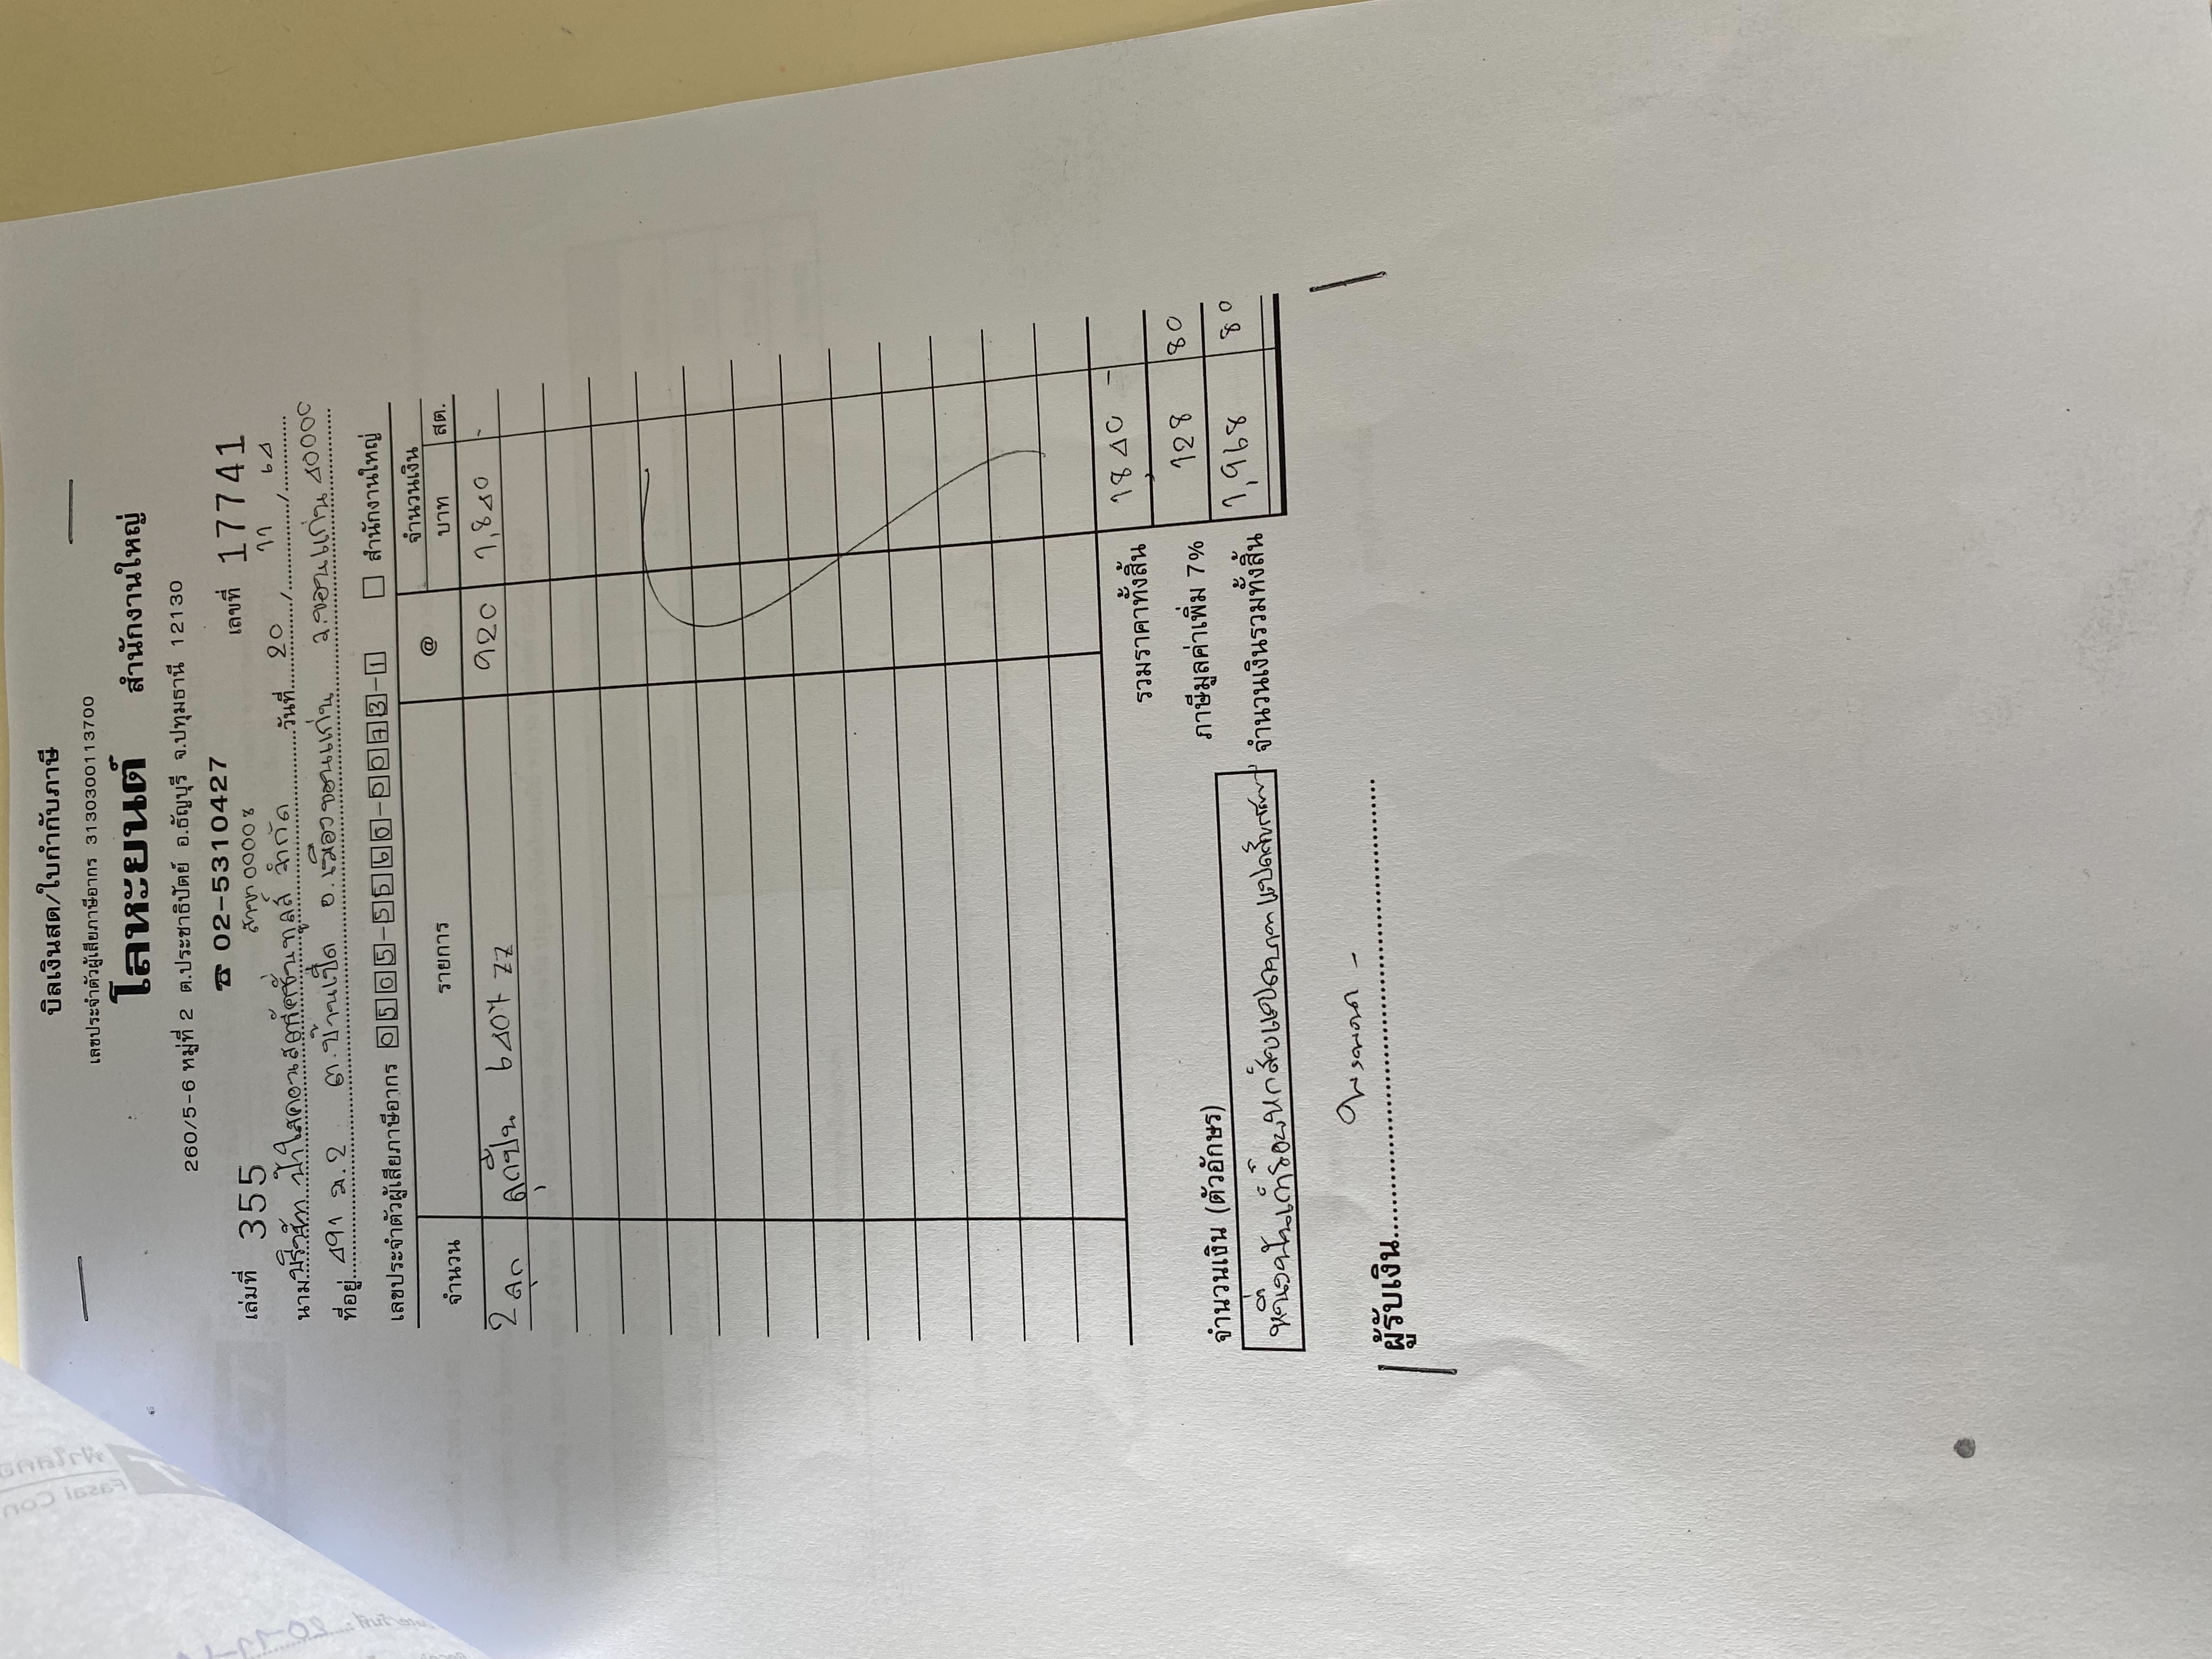 บิลเงินสด/ใบกำกับภาษี
เลขประจำตัวผู้เสียภาษีอากร 3130300113700
โลหะยนต์ สำนักงานใหญ่
260/5-6 หมู่ที่ 2 ต.ประชาธิปัตย์ อ.ธัญบุรี จ.ปทุมธานี 12130
☎ 02-5310427
เล่มที่ 355 สาขา 00008 เลขที่ 17741
นาม บริษัท ฟ้าใสคอนสตรัคชั่นทูลส์ จำกัด วันที่ 20 / 11 / 64
ที่อยู่ 491 ม.2 ต.บ้านเป็ด อ.เมืองขอนแก่น จ.ขอนแก่น 40000
เลขประจำตัวผู้เสียภาษีอากร 0505-5560-0073-1 สำนักงานใหญ่
จำนวน รายการ @ จำนวนเงิน
บาท สต.
2 ลูก ลูกปืน 6407 ZZ 920 1,840 -
รวมราคาทั้งสิ้น 1,840 -
ภาษีมูลค่าเพิ่ม 7% 128 80
จำนวนเงิน (ตัวอักษร)
หนึ่งพันเก้าร้อยหกสิบแปดบาทแปดสิบสตางค์ จำนวนเงินรวมทั้งสิ้น 1,968 80
ผู้รับเงิน